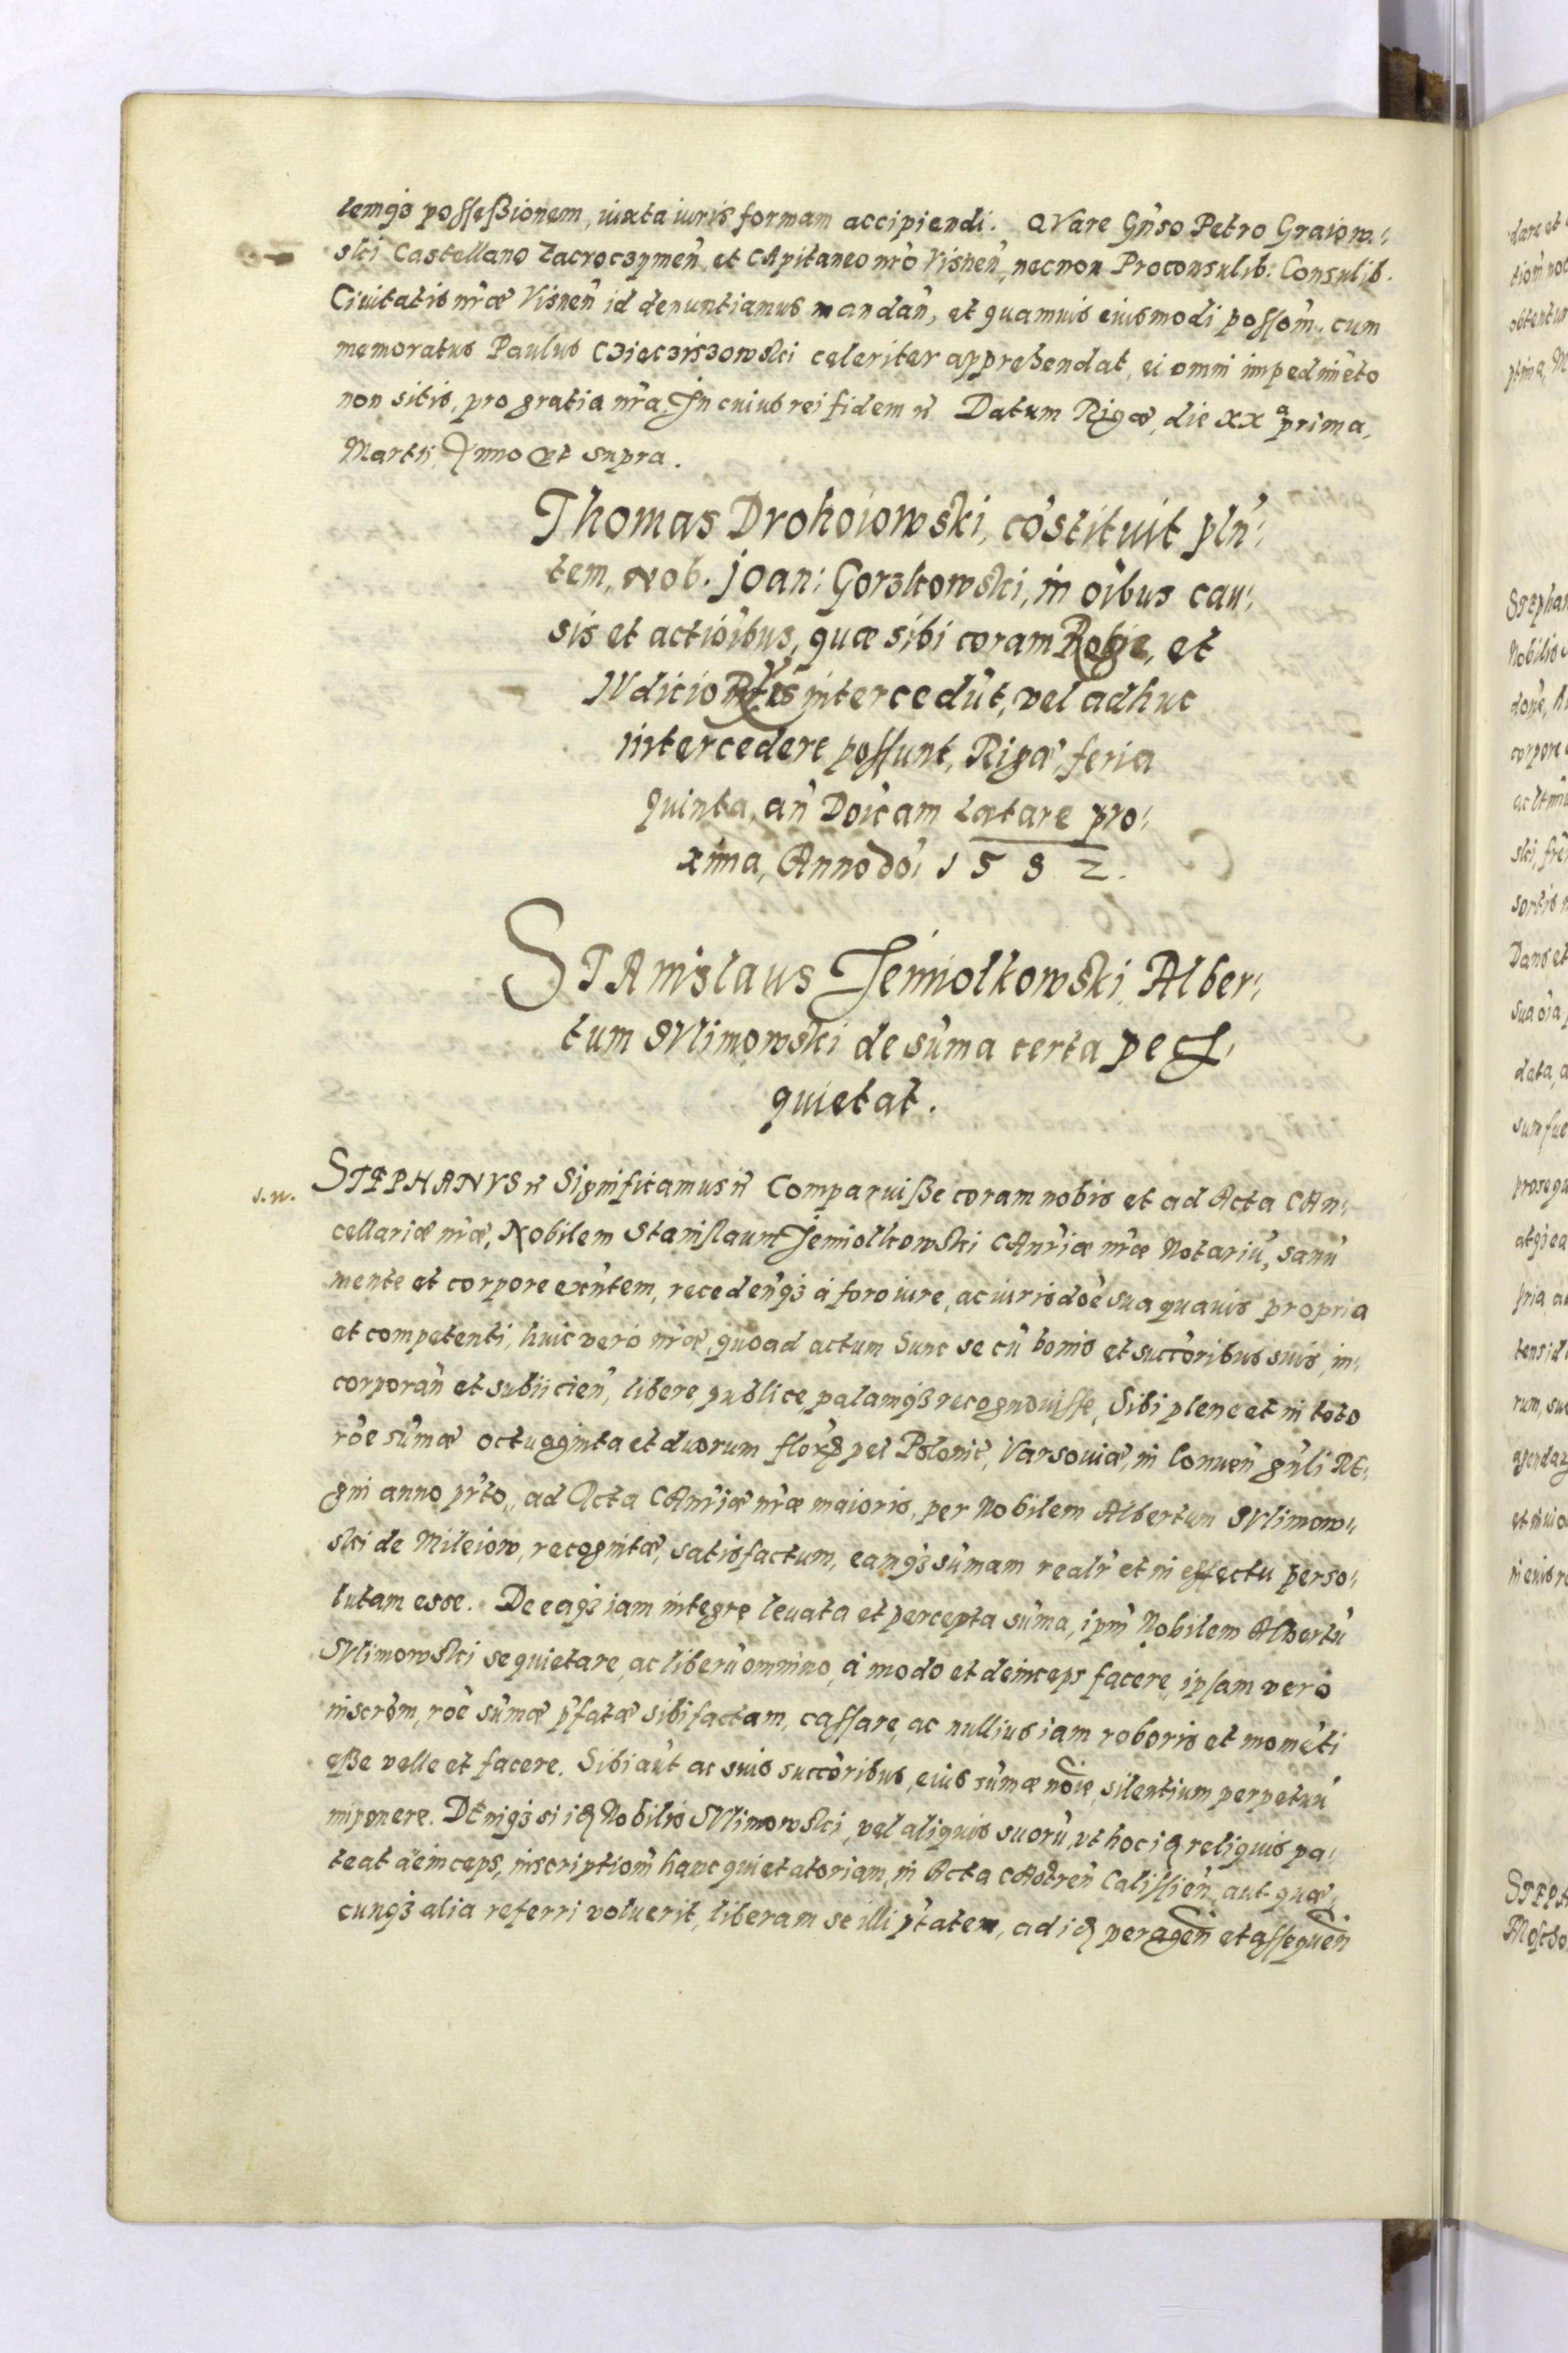 lemq3 possessionem, iuxta iuris formam accipiendi. QVare Gnso Petro Graiow:
ski Castellano Zacroczymen et CApitaneo nro Visnen, necnon Proconsulib: Consulib.
Ciuitatis nræ Visnen id denuntiamus mandan, et quamuis eiusmodi possom: cum
memoratus Paulus Cziecziszowski celeriter apprehendat, ei omni impedimeto
non sitis, pro gratia nra. In cuius rei fidem rc Datum Rigæ, die xx prima,
Martii, Anno vt supra.
Thomas Drohoiowski, costituit pln:
tem, Nob. Joan: Gorzkowski, in oibus cau:
sis et actioibus, quæ sibi coram Rege, et
IVdicio intercedut, vel adhuc
intercedere possunt, Rigæ, feria
quinta, an Doicam Lætare pro:
xima, Anno do: 1582.
STAnislaus Jemiolkowski, Alber:
tum SVlimowski de suma certa pec:
quietat.
s.n. STEPHANVS rc Significamus rc Comparuisse coram nobis et ad Acta CAn:
cellariæ nræ, Nobilem Stanislaum Jemiolkowski CAnriæ nræ Notariu, sanu
mente et corpore exntem, recedenq3 à foro iure, ac iurisdoe sua quauis propria
et competenti, huic vero nræ, quoad actum hunc se cu bonis et succoribus suis, in:
corporan et subiicien, libere, publice, palamq3 recognouisse, Sibi plene et in toto
roe sumæ octuaginta et duorum flor pel Polonic, Varsouiæ, in Conuen gnli RE:
gni anno prto, ad Acta CAnriæ nræ maioris, per Nobilem Albertum SVlimow:
ski de Mileiow, recognitæ, satisfactum, eamq3 sumam realr et in effectu perso:
lutam esse. De eaq3 iam integre leuata et percepta suma, ipm Nobilem Albertu
SVlimowski se quietare, ac liberu omnino, à modo et deinceps facere, ipsam vero
inscrom, roe sumæ pfatæ sibi factam, cassare, ac nullius iam roboris et mometi
esse velle et facere. Sibi aut ac suis succoribus, eius sumæ noie, silentium perpetuu
imponere. DEniq3 si id Nobilis SVlimowski, vel aliquis suoru, vt hoc id reliquis pa:
teat deinceps, inscriptiom hanc quietatoriam, in Acta CAstren Calissien, aut quæ:
cunq3 alia referri voluerit, liberam se illi ptatem, ad id peragen et assequen